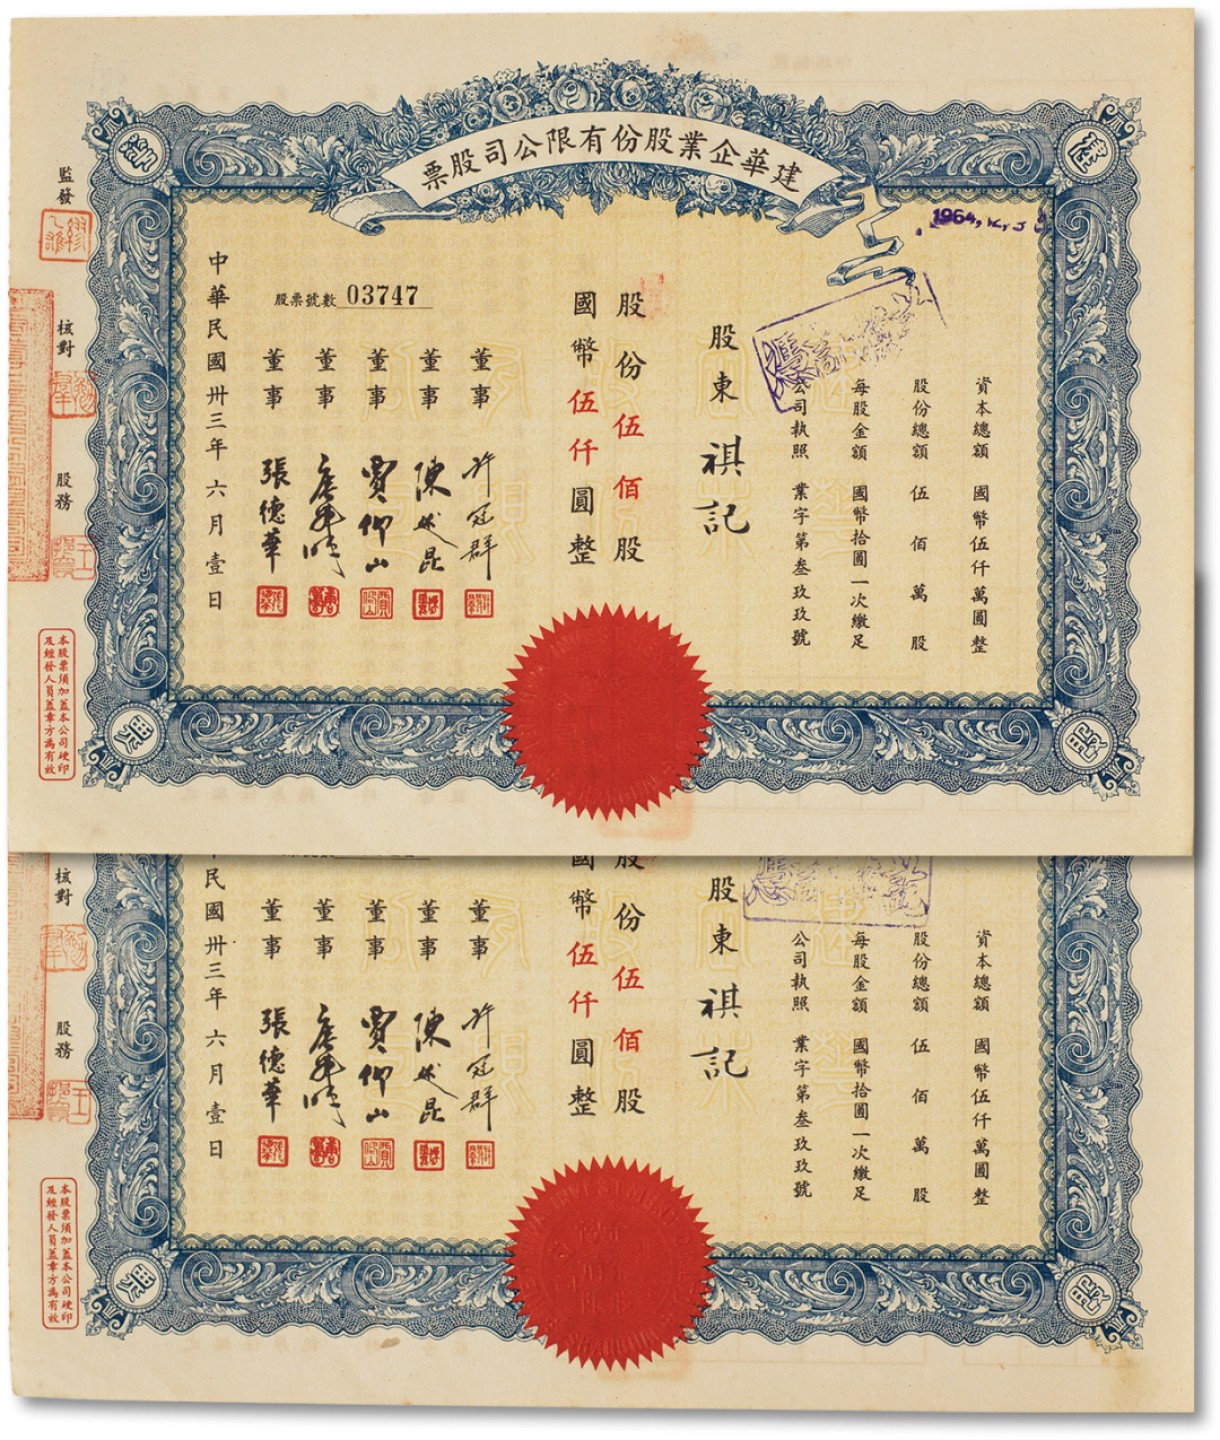 建華企業股份有限公司股票
1964.12.3
資本總額 國幣伍仟萬圓整
股份總額 伍佰萬股
每股金額 國幣拾圓一次繳足
公司執照 業字第叁玖玖號
股東 祺記
股份伍佰股
國幣伍仟圓整
股票號數 03747
董事 許冠群
董事 陳
董事 賈仰山
董事
董事 張德華
中華民國卅三年六月壹日
監發
核對
股務
本股票須加蓋本公司硬印
及經發人員蓋章方為有效
資本總額 國幣伍仟萬圓整
股份總額 伍佰萬股
每股金額 國幣拾圓一次繳足
公司執照 業字第叁玖玖號
股東 祺記
股份伍佰股
國幣伍仟圓整
董事 許冠群
董事 陳
董事 賈仰山
董事
董事 張德華
民國卅三年六月壹日
核對
股務
本股票須加蓋本公司硬印
及經發人員蓋章方為有效